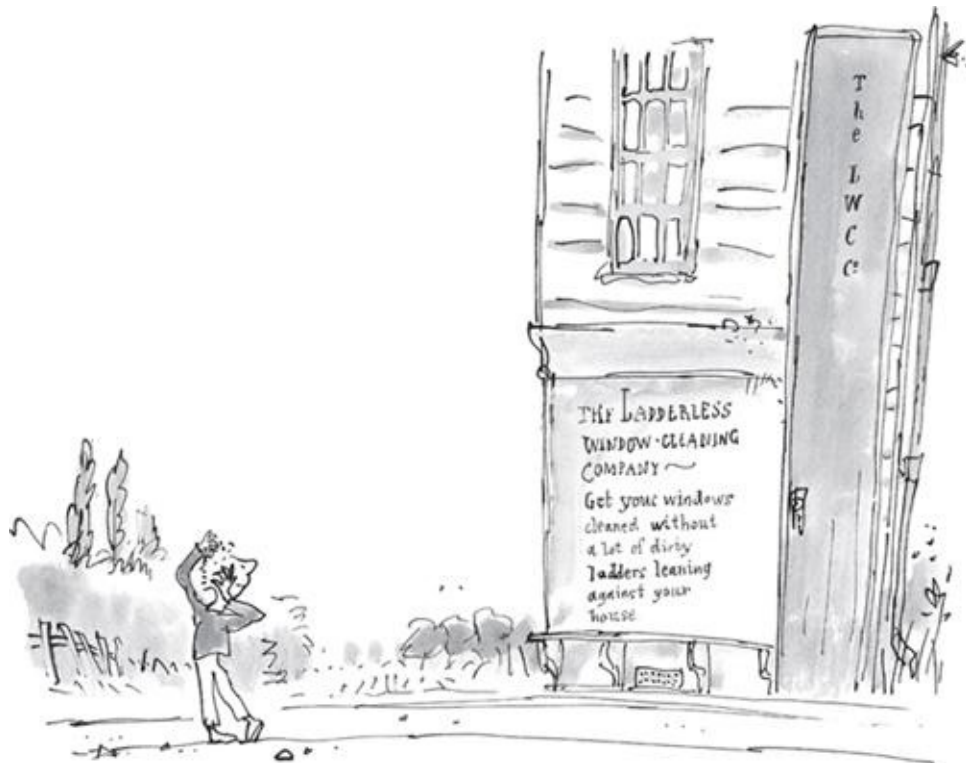 The LWC Co
THE LADDERLESS
WINDOW-CLEANING
COMPANY
Get your windows
cleaned without
a lot of dirty
ladders leaning
against your
house